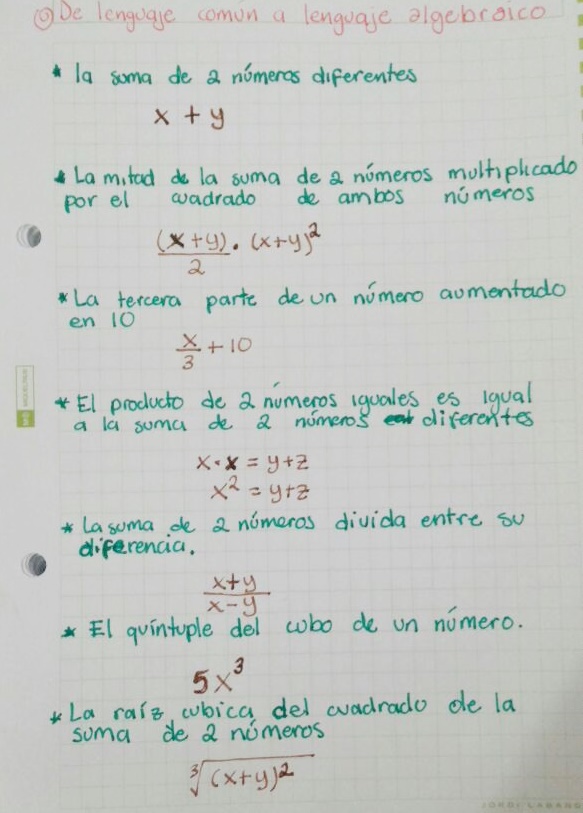 De lenguaje común a lenguaje algebraico
* la suma de 2 números diferentes
x + y
* La mitad de la suma de 2 números multiplicado
por el cuadrado de ambos números
(x+y)/2 · (x+y)²
* La tercera parte de un número aumentado
en 10
x/3 + 10
* El producto de 2 números iguales es igual
a la suma de 2 números diferentes
x · x = y+z
x² = y+z
* La suma de 2 números divida entre su
diferencia.
x+y
x-y
* El quíntuple del cubo de un número.
5x³
* La raíz cubica del cuadrado de la
suma de 2 números
∛(x+y)²
JORDI LABANDA